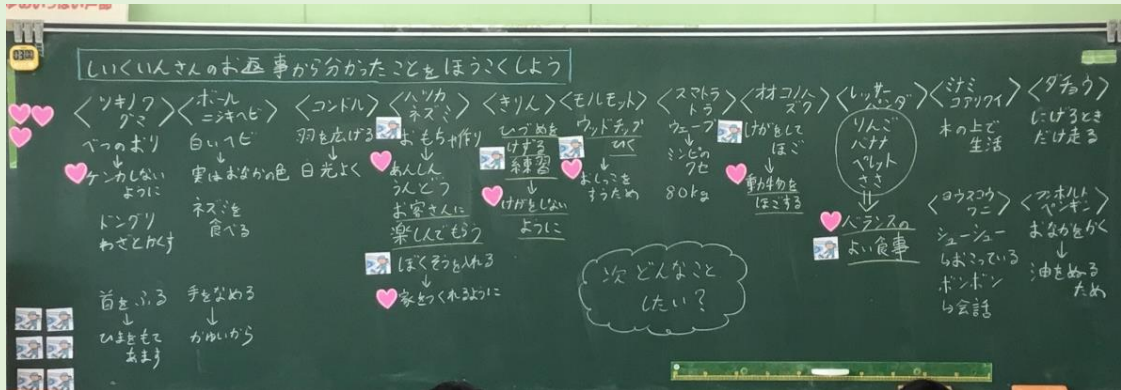 しいくいんさんのお返事から分かったことをほうこくしよう
〈ツキノワ
グマ〉
べつのおり
↓
ケンカしない
ように
ドングリ
わざとかくす
首をふる
↓
ひまをもて
あます
〈ボール
ニシキヘビ〉
白いヘビ
↓
実はおなかの色
ネズミを
食べる
手をなめる
↓
かゆいから
〈コンドル〉
羽を広げる
↓
日光よく
〈ハツカ
ネズミ〉
おもちゃ作り
↓
あんしん
うんどう
お客さんに
楽しんでもらう
ぼくそうを入れる
↓
家をつくれるように
〈きりん〉
ひづめを
けずる
練習
↓
けがをしない
ように
〈モルモット〉
ウッドチップ
ひく
↓
おしっこを
すうため
〈スマトラ
トラ〉
ウェーブ
↓
ミンピの
クセ
80kg
次どんなこと
したい?
〈オオコノハ
ズク〉
けがをして
ほご
↓
動物を
ほごする
〈レッサー
パンダ〉
りんご
バナナ
ペレット
ささ
⇓
バランスの
よい食事
〈ミナミ
コアリクイ〉
木の上で
生活
〈ヨウスコウ
ワニ〉
シューシュー
↳おこっている
ボンボン
↳会話
〈ダチョウ〉
にげるとき
だけ走る
〈フンボルト
ペンギン〉
おなかをかく
↓
油をぬる
ため